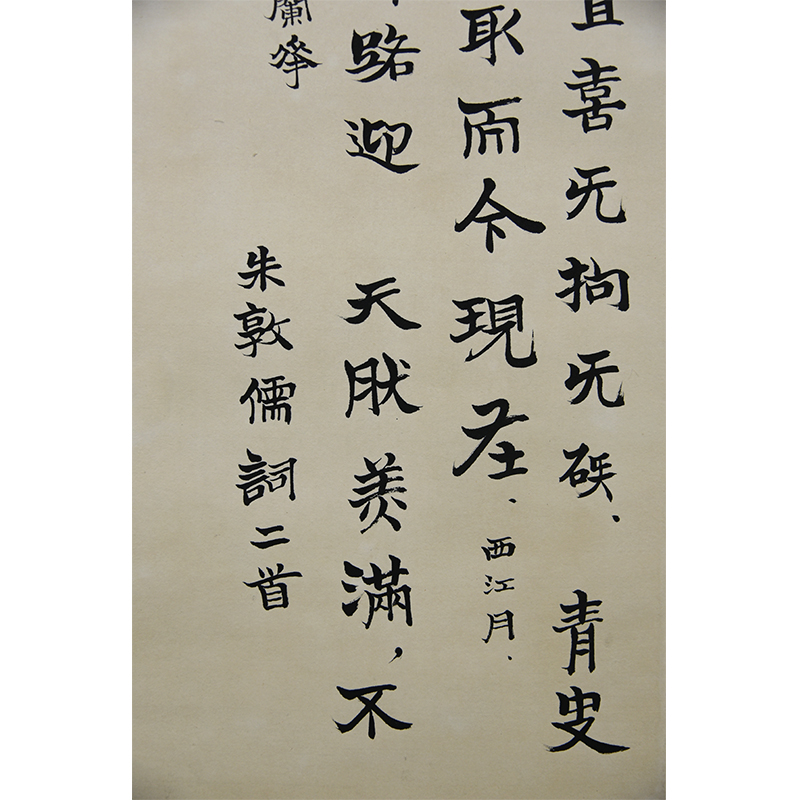 且喜无拘无碍、青史
取而今現在、西江月、
路迎 天然美滿,不
朱敦儒詞二首
蘭